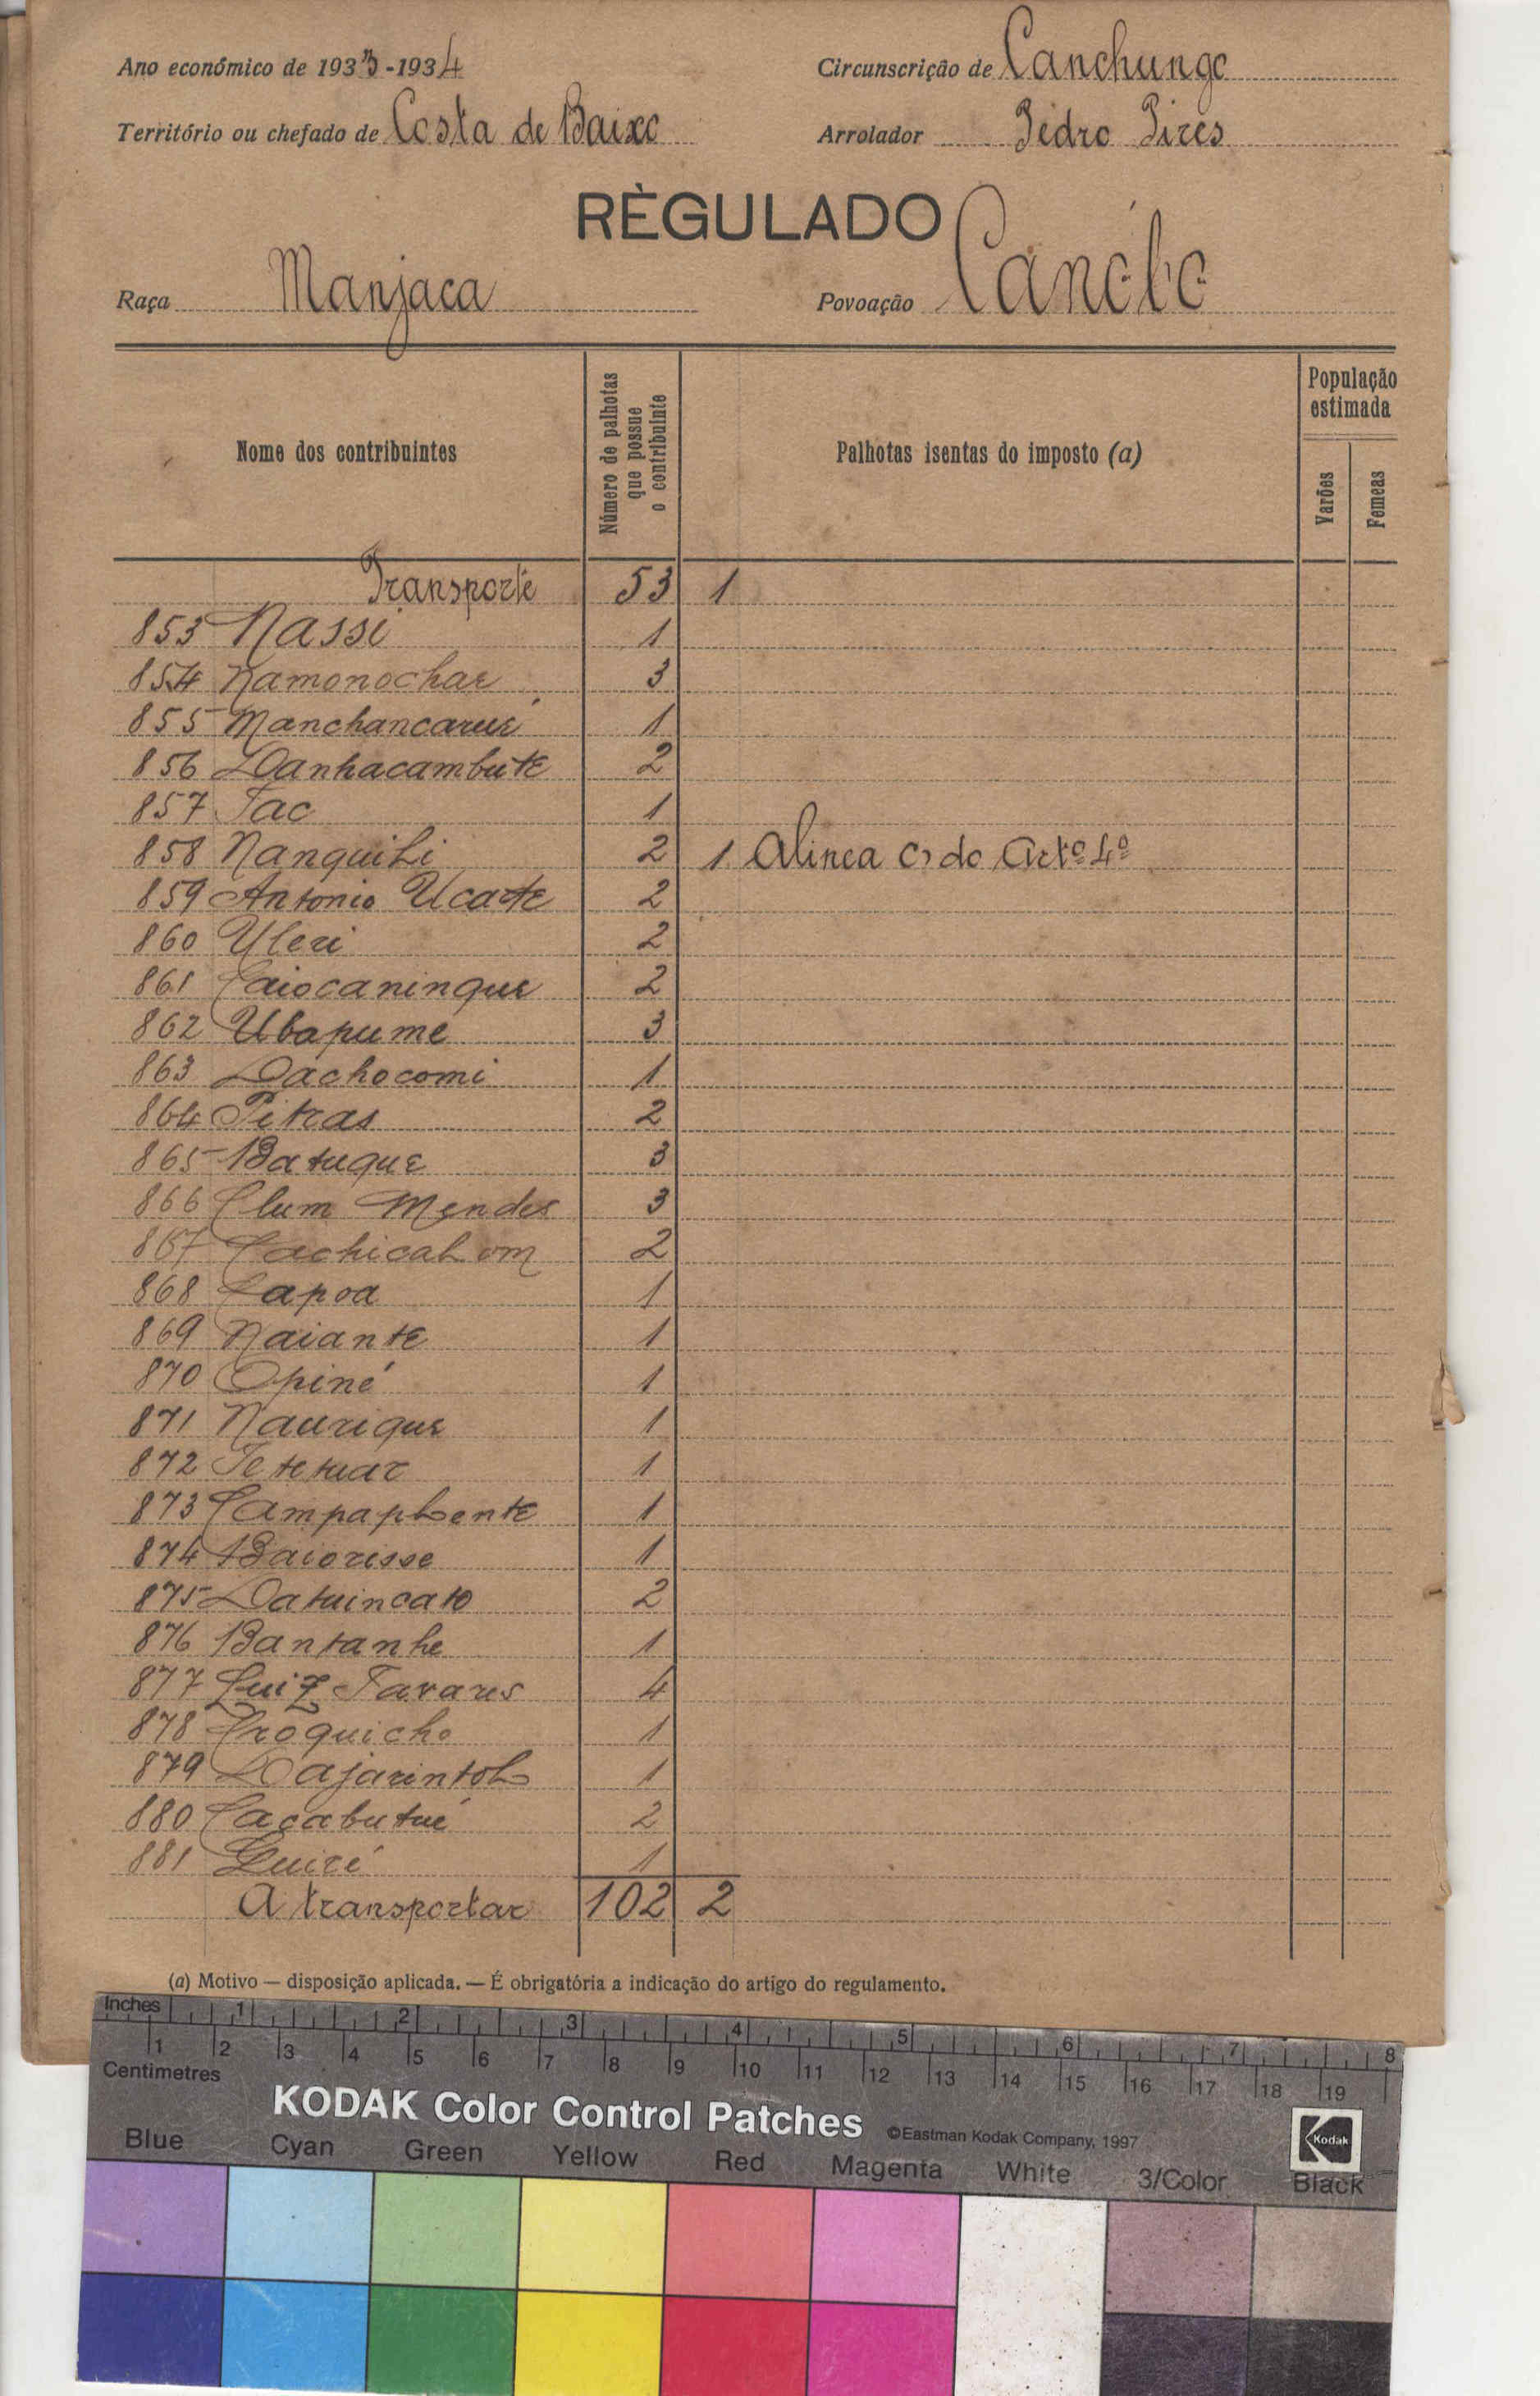 Ano económico de 1933-1934 Circunscrição de Canchungo
Território ou chefado de Costa de Baixo Arrolador Pedro Pires
RÈGULADO
Raça Manjaca Povoação Canóbo
Nome dos contribuintes
Número de palhotas que possue o contribuinte
Palhotas isentas do imposto (a)
População estimada
Varões
Femeas
Transporte 53 1
853 Nassi 1
854 Namonochar 3
855 Manchancarué 1
856 Danhacambute 2
857 Tac 1
858 Nanquili 2 1 Alinea c) do Artº 4º
859 Antonio Ucarte 2
860 Uleri 2
861 Caiocaninque 2
862 Ubapume 3
863 Dachocomi 1
864 Pitras 2
865 Batuque 3
866 Clum Mendes 3
867 Cachicalom 2
868 Capoa 1
869 Naiante 1
870 Opiné 1
871 Naurique 1
872 Tetetuar 1
873 Campaplente 1
874 Baiorisse 1
875 Datuincato 2
876 Bantanhe 1
877 Luiz Tavares 4
878 Croquicho 1
879 Dajarintol 1
880 Caçabutué 2
881 Guiré 1
A transportar 102 2
(a) Motivo — disposição aplicada. — É obrigatória a indicação do artigo do regulamento.
Inches 1 2 3 4 5 6 7 8
1 2 3 4 5 6 7 8 9 10 11 12 13 14 15 16 17 18 19
Centimetres
KODAK Color Control Patches ©Eastman Kodak Company, 1997 Kodak
Blue Cyan Green Yellow Red Magenta White 3/Color Black